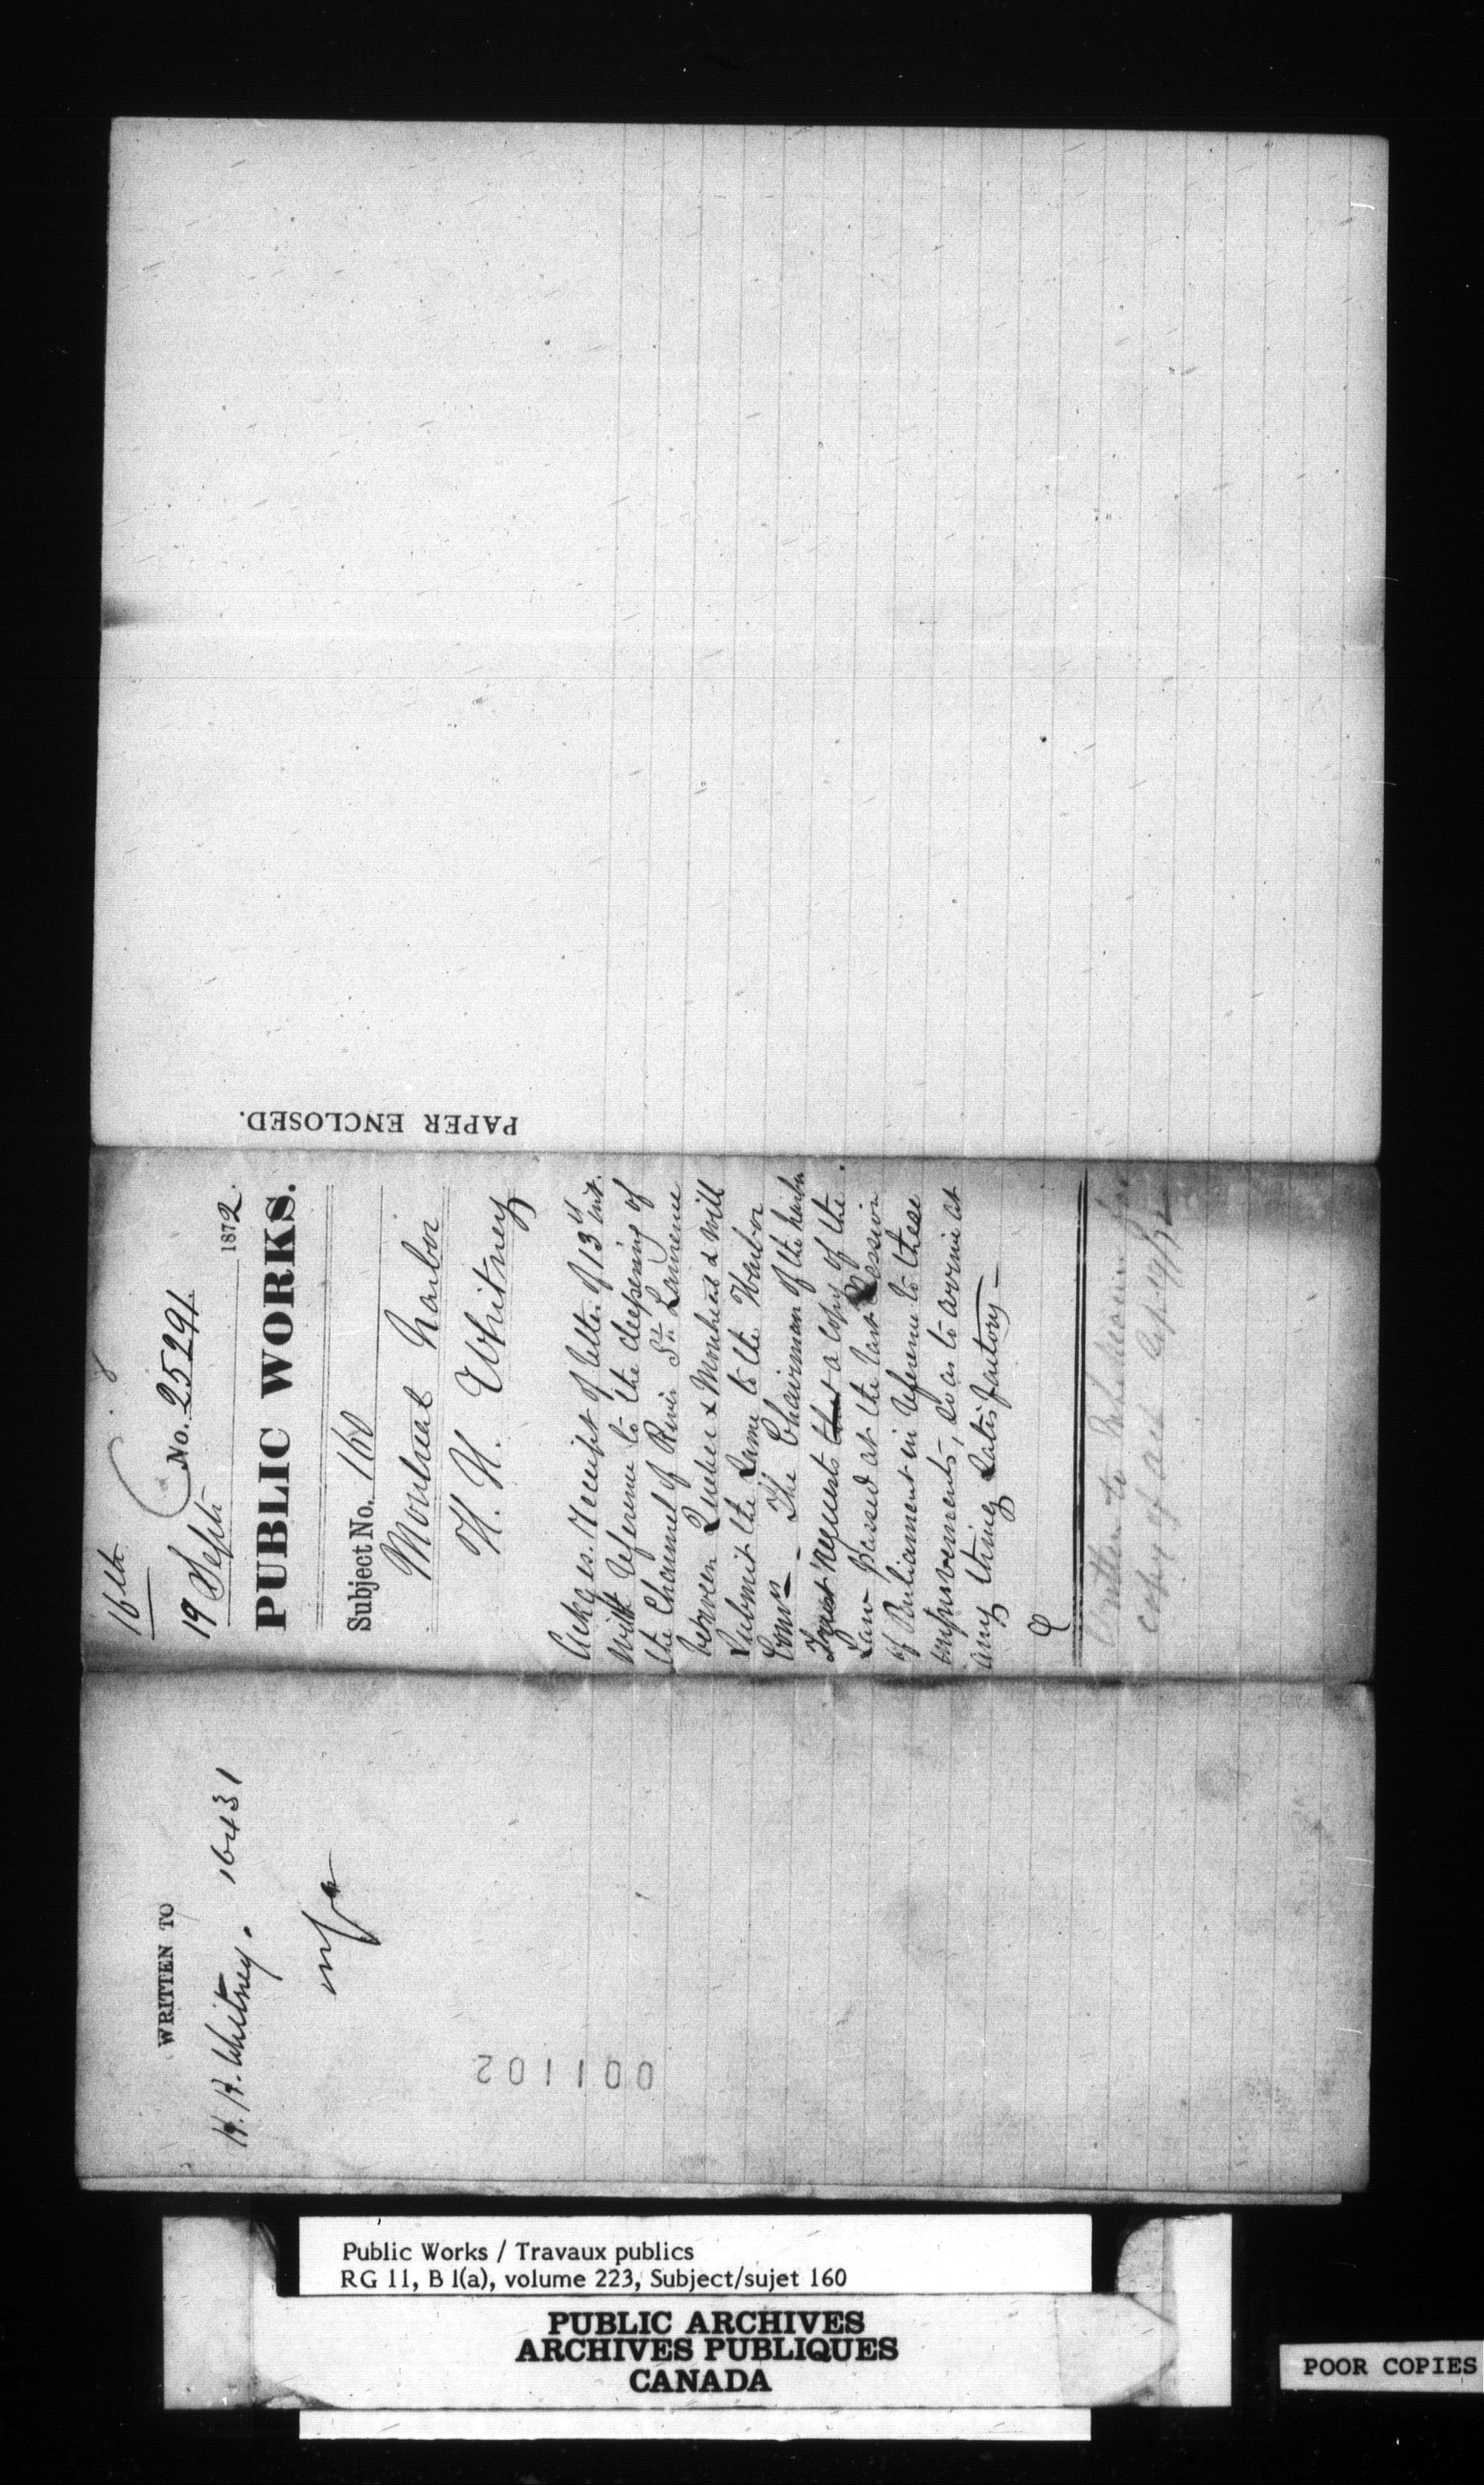 16th
No. 25291.
19 Septr 1872.
PUBLIC WORKS.
Subject No. 160
Montreal Harbor
H. H. Whitney
Ackges. Receipt of letter of 13th inst.
with reference to the deepening of
the Channel of River St. Lawrence
between Quebec & Montreal & will
Submit the Same to the Harbor
Comrs — The Chairman of the harbor
Trust requests that a copy of the
Law passed at the last Session
of Parliament in reference to these
improvements, so as to arrive at
any thing Satisfactory —
Written to
copy of act Sep 19/72
PAPER ENCLOSED.
WRITTEN TO
H. H. Whitney. 16431
001102
Public Works / Travaux publics
RG 11, B 1(a), volume 223, Subject/sujet 160
PUBLIC ARCHIVES
ARCHIVES PUBLIQUES
CANADA
POOR COPIES